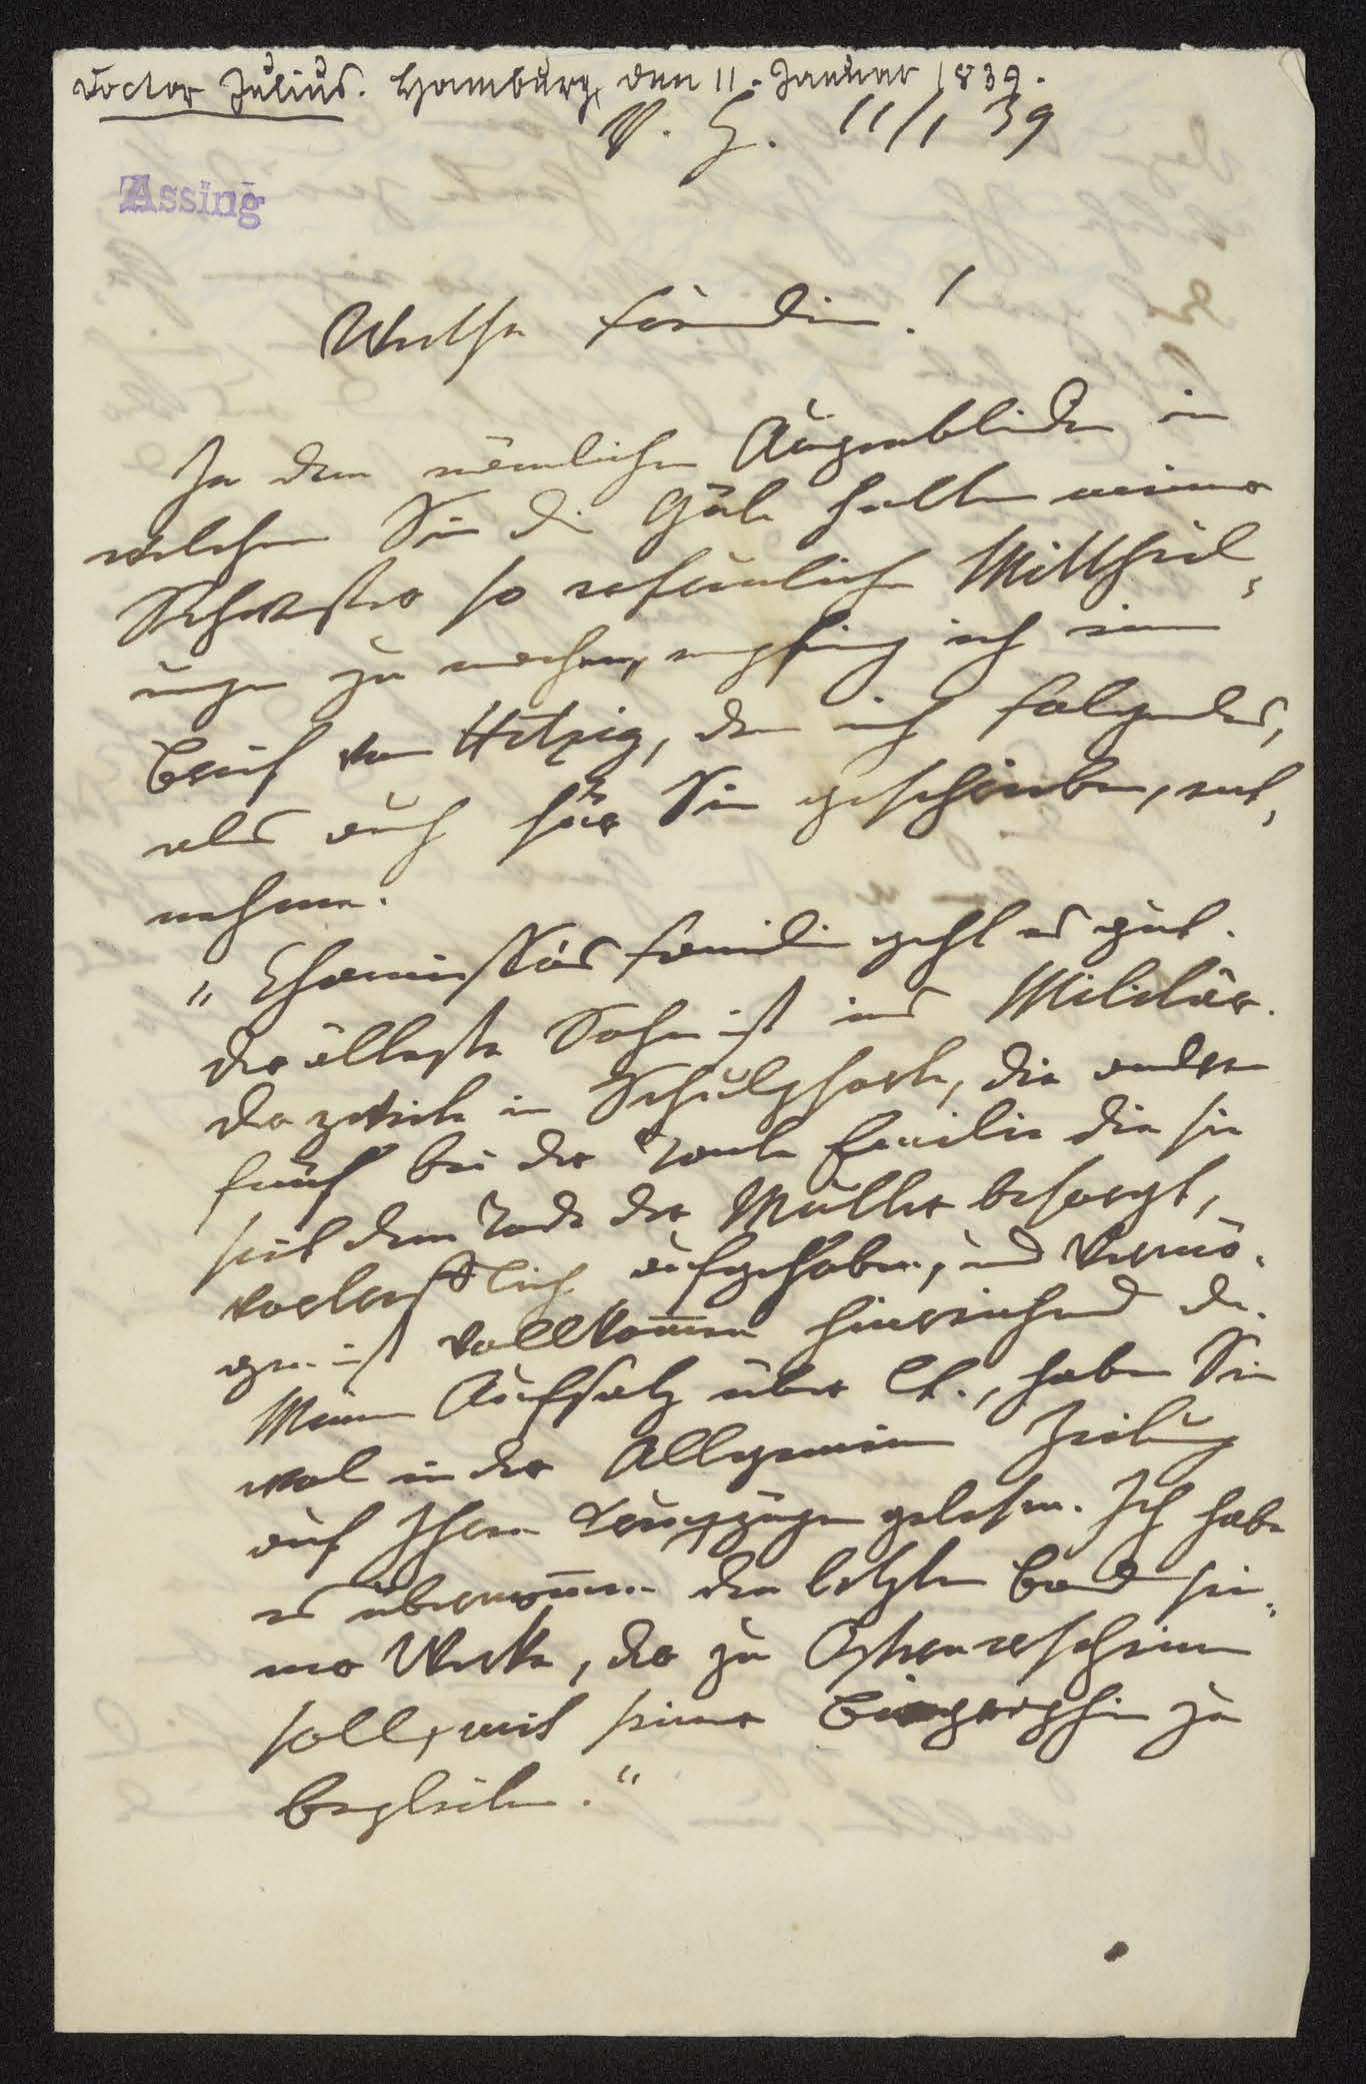 Doctor Julius. Hamburg, den 11. Januar 1839.
V. H. 11/1 39
Assing
Werthe Freundin!
In dem nämlichen Augenblicke in
welchem Sie die Güte hatten meiner
Schwester so erfreuliche Mittheil-
ungen zu machen, empfing ich einen
Brief von Hitzig, dem ich folgendes,
als auch für Sie geschrieben, ent-
nehme.
„Chamisso's Familie geht es gut.
Der älteste Sohn ist im Militär.
Der zweite in Schulpforte, die andern
fünf bei der Tante Emilie die sie
seit dem Tode der Mutter besorgt,
vortrefflich aufgehoben, und Vermö-
gen ist vollkommen hinreichend da.
Meinen Aufsatz über Ch., haben Sie
wol in der Allgemeinen Zeitung
auf Ihren gelesen. Ich habe
es übernommen den letzten Band sei-
ner Werke, der zu Ostern erscheinen
soll, mit seiner Biographie zu
begleiten.“